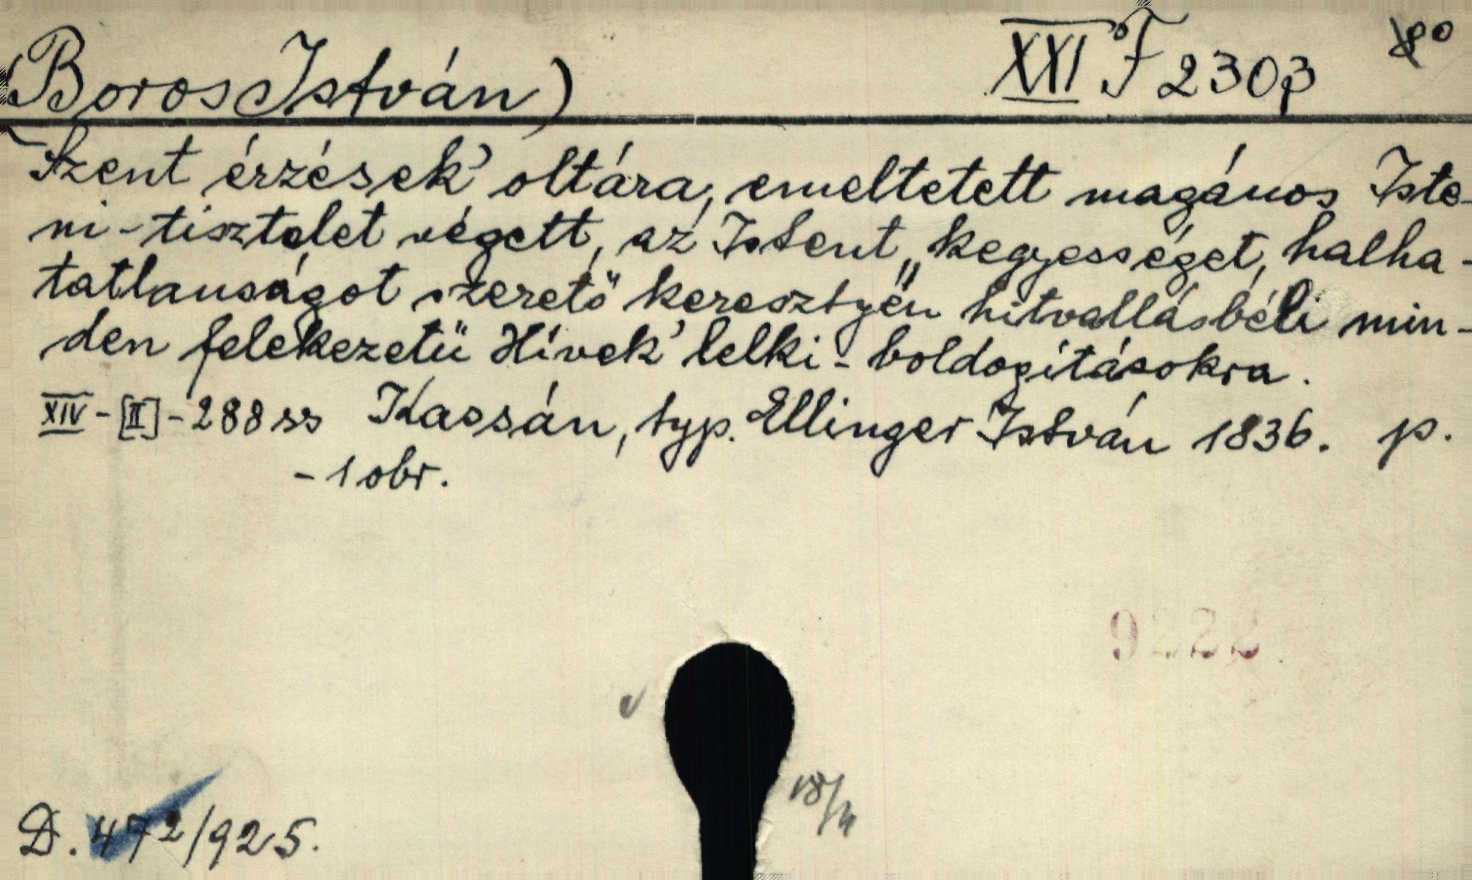 (Boros István) XXI F 2303 8°
Szent érzések' oltára, emeltetett magános Iste-
ni-tisztelet végett, az Istent, kegyességet, halha-
tatlanságot szerető keresztyén hitvallásbéli min-
den felekezetü Hívek' lelki-boldogításokra.
XIV-[II]-288 ss Kassán, typ. Ellinger István 1836. p.
-1 obr.
9222
D. 472/925.